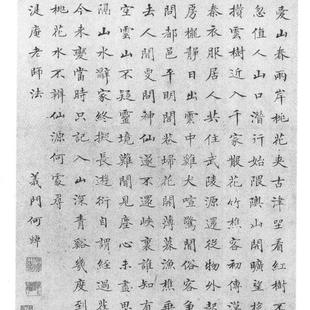 愛山春兩岸桃花夾古津坐看紅樹不
忽值人山口潛行始隈隩山開曠望旋
攢雲樹近入千家散花竹樵客初傳漢
秦衣服居人共住武陵源還從物外起
房櫳靜日出雲中雞犬喧驚聞俗客爭
問都邑平明閭巷掃花開薄暮漁樵乘
去人間更問神仙遂不還峽裏誰知有
空雲山不疑靈境難聞見塵心未盡思
隔山水辭家終擬長遊衍自謂經過舊
今來變當時只記入山深青谿幾度到
桃花水不辨仙源何處尋
湜庵老師法
義門何焯